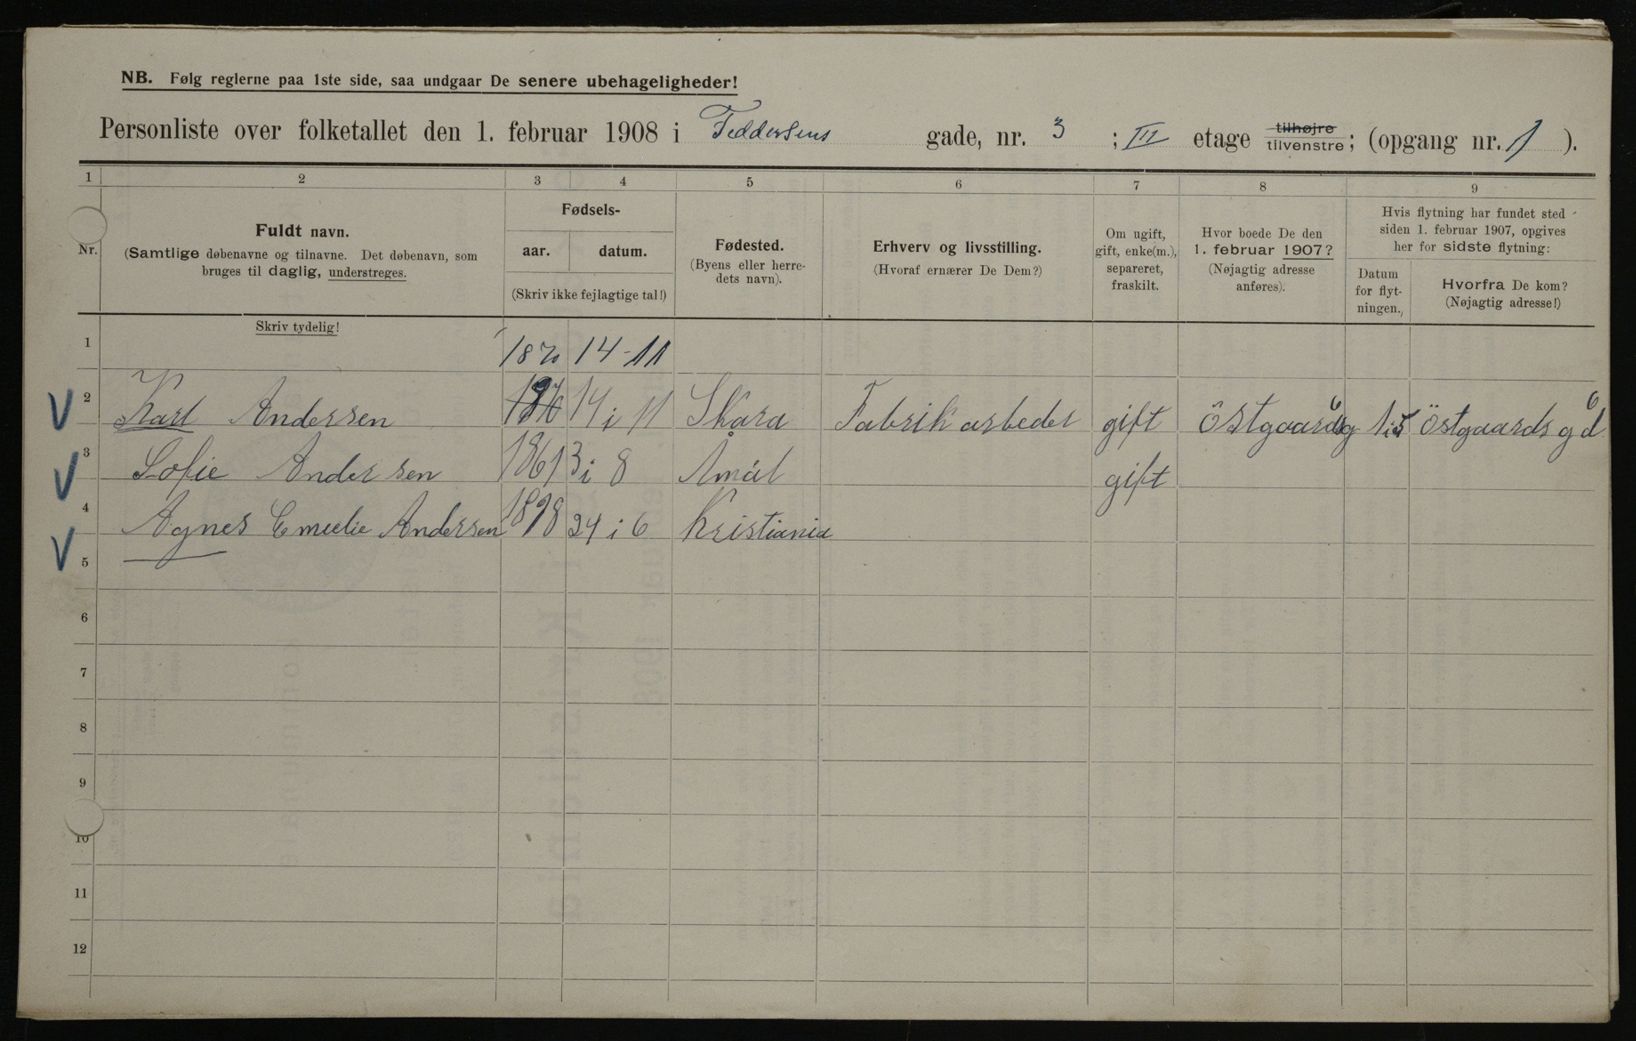 NB. Følg reglerne paa 1ste side, saa undgaar De senere ubehageligheder!
Personliste over folketallet den 1. februar 1908 i Feddersens gade, nr. 3 ; III etage tilhøjre tilvenstre ; (opgang nr. 1 ).
1 2 3 4 5 6 7 8 9
Nr.
Fuldt navn.
(Samtlige døbenavne og tilnavne. Det døbenavn, som
bruges til daglig, understreges.
Skriv tydelig!
Fødsels-
aar. datum.
(Skriv ikke fejlagtige tal!)
Fødested.
(Byens eller herre-
dets navn).
Erhverv og livsstilling.
(Hvoraf ernærer De Dem?)
Om ugift,
gift, enke(m.),
separeret,
fraskilt.
Hvor boede De den
1. februar 1907?
(Nøjagtig adresse
anføres).
Hvis flytning har fundet sted
siden 1. februar 1907, opgives
her for sidste flytning:
Datum
for flyt-
ningen.
Hvorfra De kom?
(Nøjagtig adresse!)
1 1870 14-11
2 Karl Andersen 14 i 11 Skara Fabrik arbeder gift Östgaardsg 6 1.5 Östgaards g d 6
3 Sofie Andersen 1861 3 i 8 Åmål gift
4 Agnes Emelie Andersen 1898 24 i 6 Kristiania
5
6
7
8
9
10
11
12